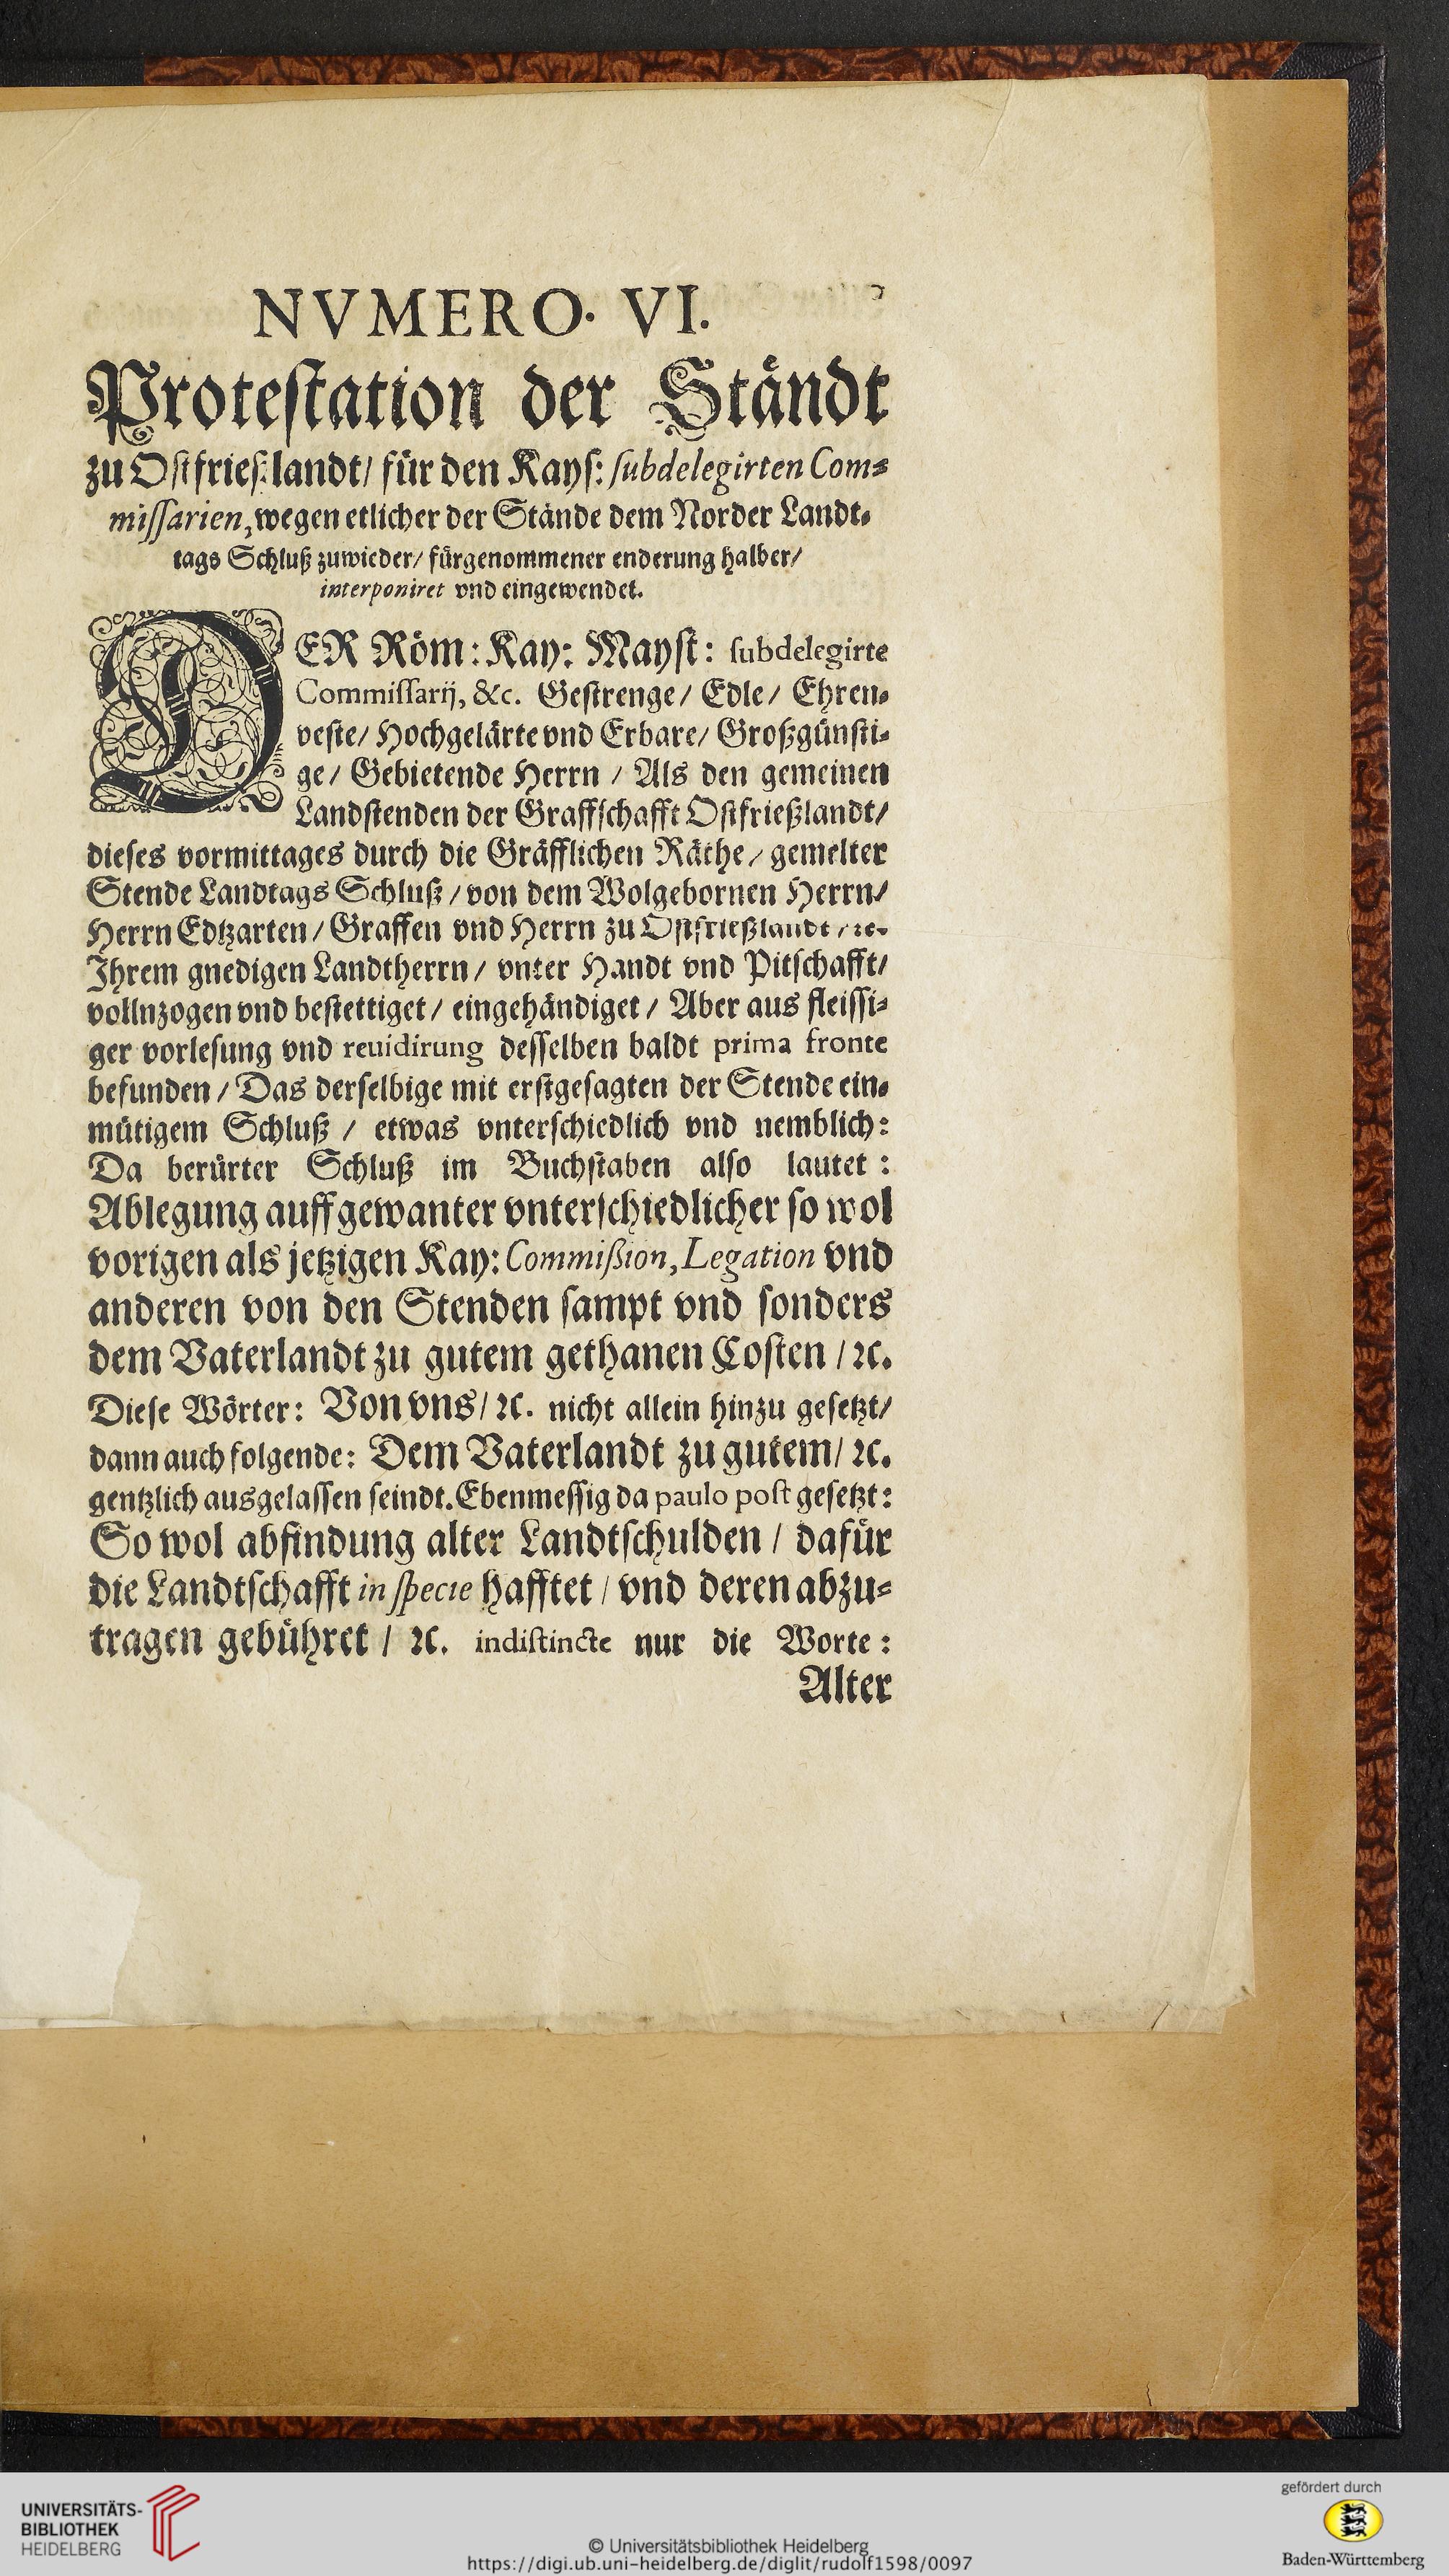 NVMERO. VI.
Proteſtation der Ständt
zu Oſtfrieſzlandt/ für den Kayſ: ſubdelegirten Com-
miſſarien, wegen etlicher der Stände dem Norder Landt-
tags Schluß zuwieder/ fürgenommener enderung halber/
interponiret vnd eingewendet.
DER Röm: Kay: Mayſt: ſubdelegirte
Commiſſarij, &c. Geſtrenge/ Edle/ Ehren-
veſte/ Hochgelärte vnd Erbare/ Großgünſti-
ge/ Gebietende Herrn / Als den gemeinen
Landſtenden der Graffſchafft Oſtfrießlandt/
dieſes vormittages durch die Gräfflichen Räthe/ gemelter
Stende Landtags Schluß / von dem Wolgebornen Herrn/
Herrn Edtzarten/ Graffen vnd Herrn zu Oſtfrießlandt / ꝛc.
Ihrem gnedigen Landtherrn/ vnter Handt vnd Pitſchafft/
vollnzogen vnd beſtettiget/ eingehändiget / Aber aus fleiſſi-
ger vorleſung vnd reuidirung deſſelben baldt prima fronte
befunden / Das derſelbige mit erſtgeſagten der Stende ein-
mütigem Schluß / etwas vnterſchiedlich vnd nemblich:
Da berürter Schluß im Buchſtaben alſo lautet:
Ablegung auffgewanter vnterſchiedlicher ſo wol
vorigen als jetzigen Kay: Commißion, Legation vnd
anderen von den Stenden ſampt vnd ſonders
dem Vaterlandt zu gutem gethanen Coſten / ꝛc.
Dieſe Wörter: Von vns/ ꝛc. nicht allein hinzu geſetzt/
dann auch folgende: Dem Vaterlandt zu gutem/ ꝛc.
gentzlich ausgelaſſen ſeindt. Ebenmeſſig da paulo poſt geſetzt:
So wol abfindung alter Landtſchulden / dafür
die Landtſchafft in ſpecie hafftet / vnd deren abzu-
tragen gebühret / ꝛc. indiſtincte nur die Worte:
Alter
UNIVERSITÄTS-
BIBLIOTHEK
HEIDELBERG
© Universitätsbibliothek Heidelberg
https://digi.ub.uni-heidelberg.de/diglit/rudolf1598/0097
gefördert durch
Baden-Württemberg